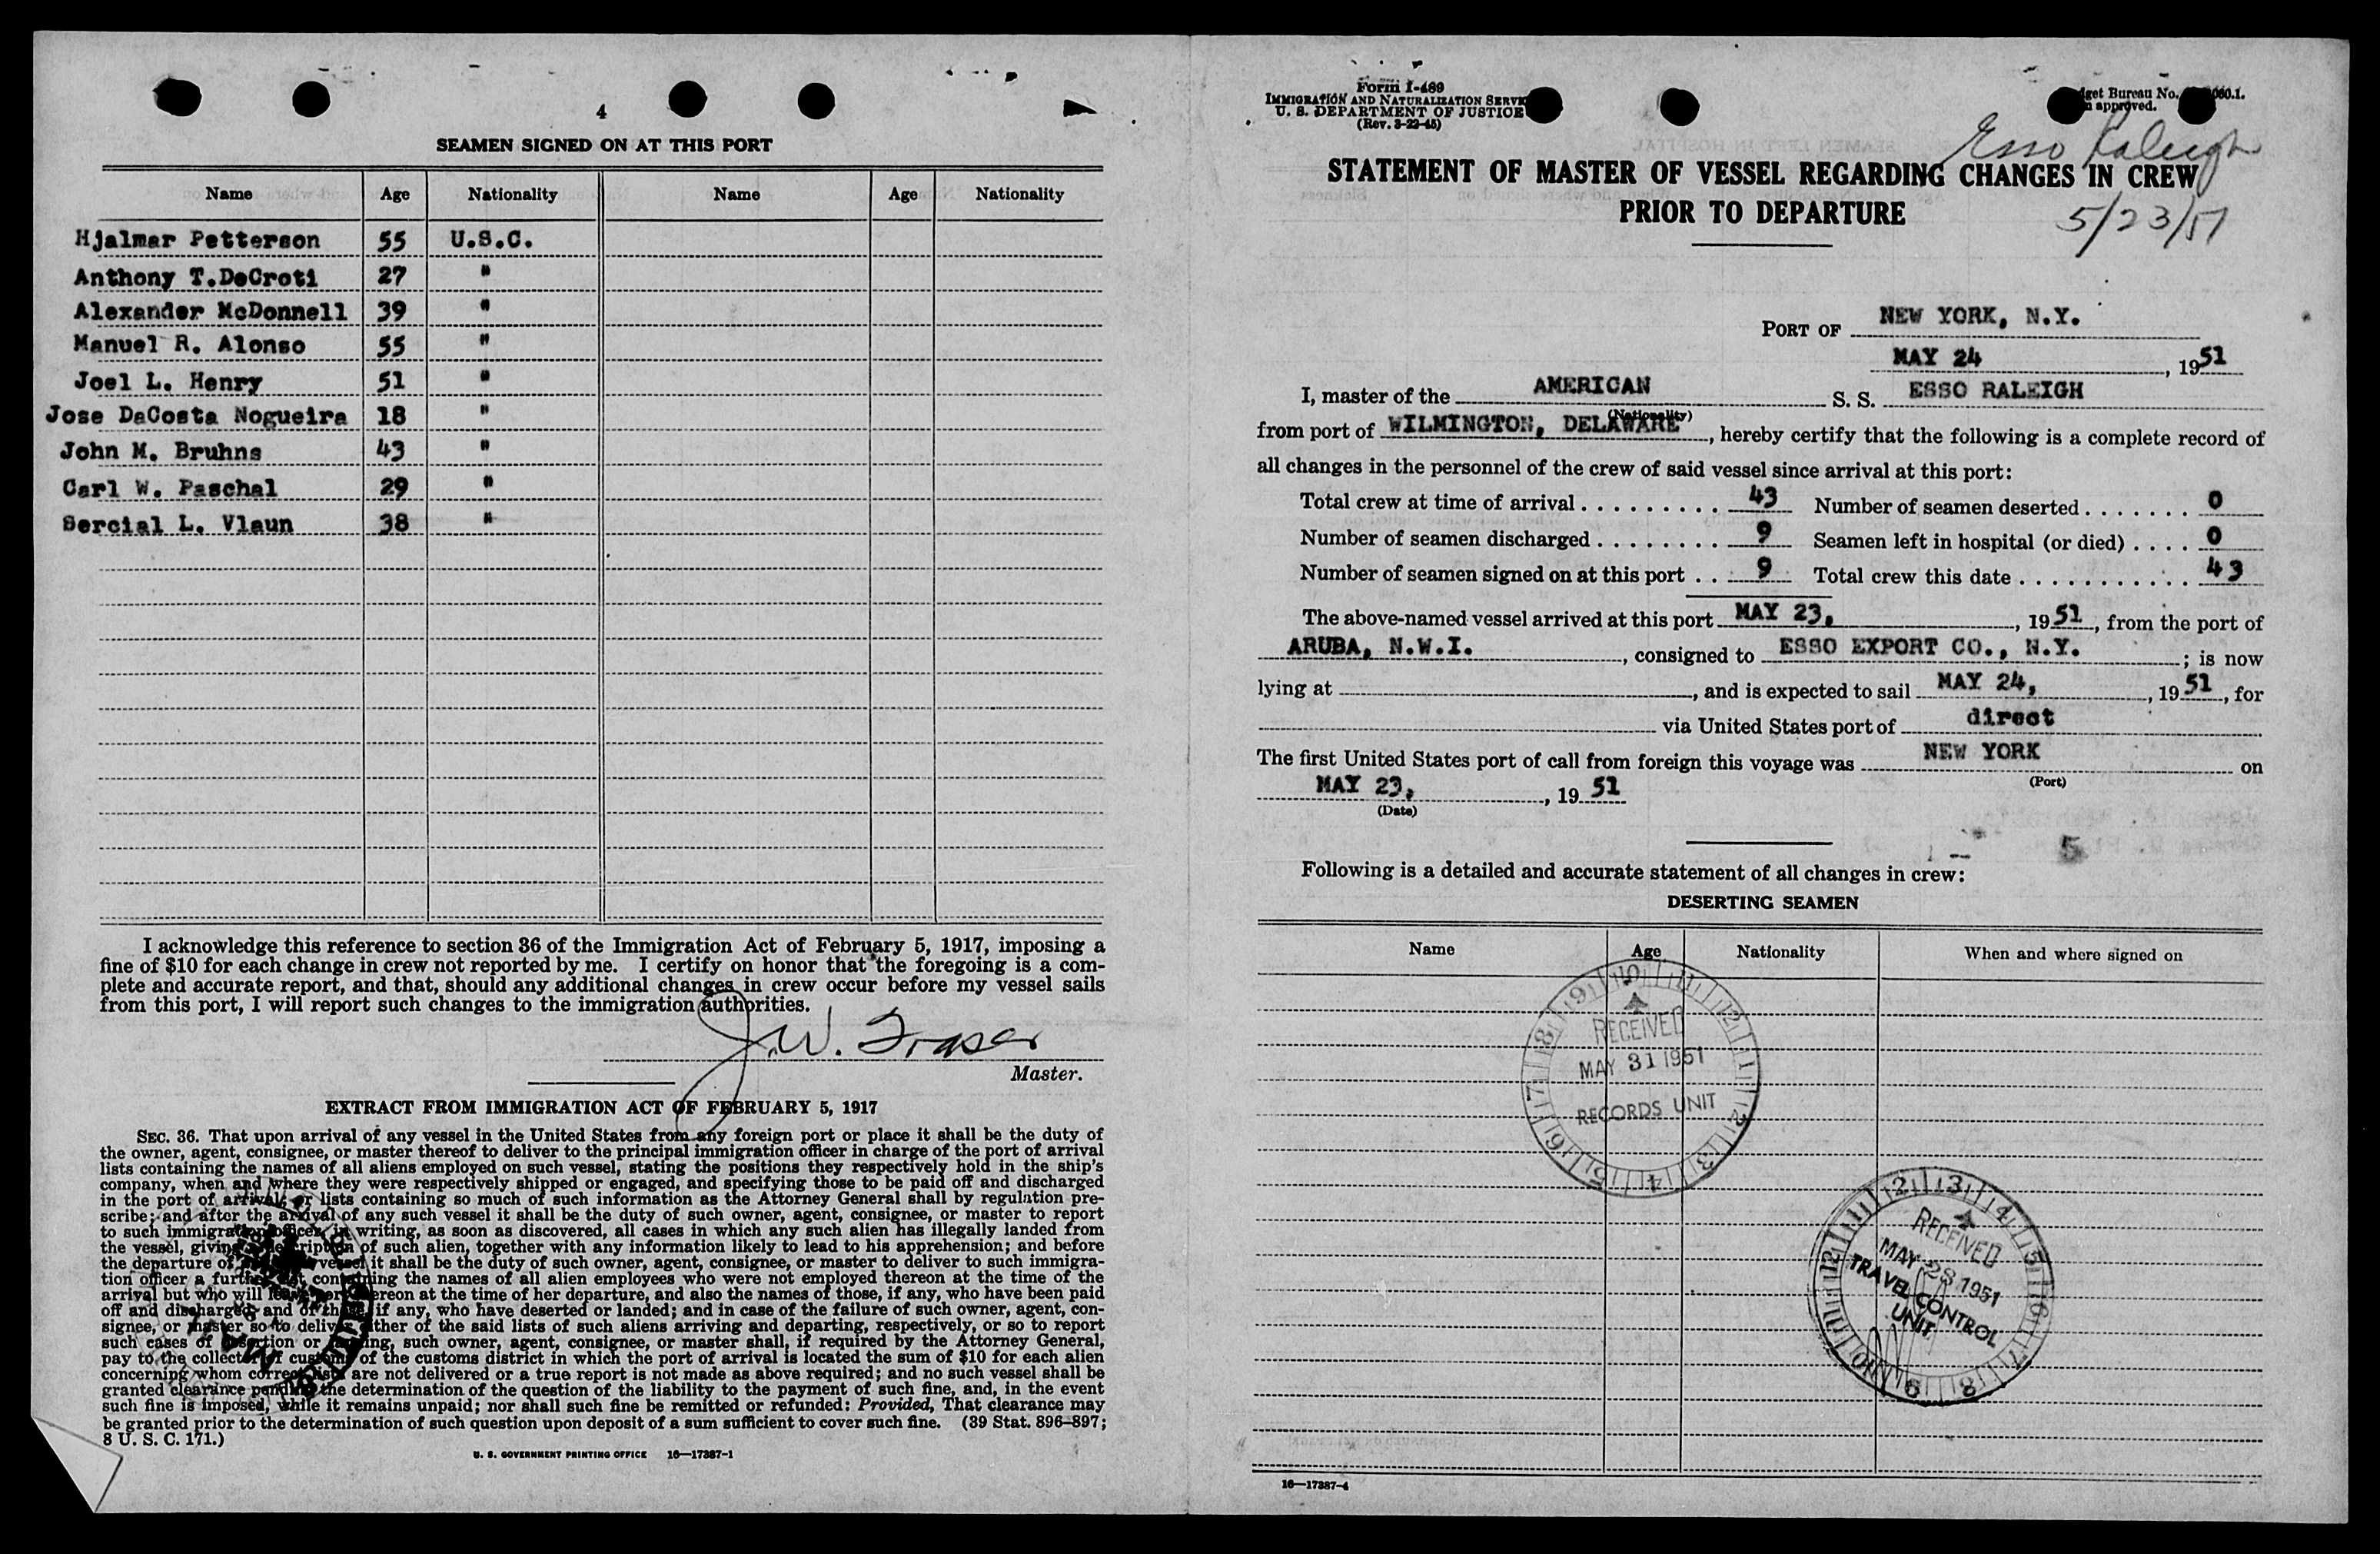 4
SEAMEN SIGNED ON AT THIS PORT
Name Age Nationality Name Age Nationality
Hjalmar Petterson 55 U.S.C.
Anthony T.DeCroti 27 "
Alexander McDonnell 39 "
Manuel R. Alonso 55 "
Joel L. Henry 51 "
Jose DaCosta Nogueira 18 "
John M. Bruhns 43 "
Carl W. Paschal 29 "
Sercial L. Vlaun 38 "
I acknowledge this reference to section 36 of the Immigration Act of February 5, 1917, imposing a
fine of $10 for each change in crew not reported by me. I certify on honor that the foregoing is a com-
plete and accurate report, and that, should any additional changes in crew occur before my vessel sails
from this port, I will report such changes to the immigration authorities.
J.W. Fraser
Master.
EXTRACT FROM IMMIGRATION ACT OF FEBRUARY 5, 1917
SEC. 36. That upon arrival of any vessel in the United States from any foreign port or place it shall be the duty of
the owner, agent, consignee, or master thereof to deliver to the principal immigration officer in charge of the port of arrival
lists containing the names of all aliens employed on such vessel, stating the positions they respectively hold in the ship's
company, when and where they were respectively shipped or engaged, and specifying those to be paid off and discharged
in the port of arrival; or lists containing so much of such information as the Attorney General shall by regulation pre-
scribe; and after the arrival of any such vessel it shall be the duty of such owner, agent, consignee, or master to report
to such immigration officer, in writing, as soon as discovered, all cases in which any such alien has illegally landed from
the vessel, giving a description of such alien, together with any information likely to lead to his apprehension; and before
the departure of vessel it shall be the duty of such owner, agent, consignee, or master to deliver to such immigra-
tion officer a further list containing the names of all alien employees who were not employed thereon at the time of the
arrival but who will leave port thereon at the time of her departure, and also the names of those, if any, who have been paid
off and discharged, and of those, if any, who have deserted or landed; and in case of the failure of such owner, agent, con-
signee, or master so to deliver either of the said lists of such aliens arriving and departing, respectively, or so to report
such cases of desertion or landing, such owner, agent, consignee, or master shall, if required by the Attorney General,
pay to the collector of customs of the customs district in which the port of arrival is located the sum of $10 for each alien
concerning whom correct lists are not delivered or a true report is not made as above required; and no such vessel shall be
granted clearance pending the determination of the question of the liability to the payment of such fine, and, in the event
such fine is imposed, while it remains unpaid; nor shall such fine be remitted or refunded: Provided, That clearance may
be granted prior to the determination of such question upon deposit of a sum sufficient to cover such fine. (39 Stat. 896–897;
8 U. S. C. 171.)
U. S. GOVERNMENT PRINTING OFFICE 16—17387-1
Form I-489
IMMIGRATION AND NATURALIZATION SERVICE
U. S. DEPARTMENT OF JUSTICE
(Rev. 3-22-45)
Bureau No.
approved.
Esso Raleigh
STATEMENT OF MASTER OF VESSEL REGARDING CHANGES IN CREW
PRIOR TO DEPARTURE
5/23/51
PORT OF NEW YORK, N.Y.
MAY 24, 1951
I, master of the AMERICAN S. S. ESSO RALEIGH
(Nationality)
from port of WILMINGTON, DELAWARE, hereby certify that the following is a complete record of
all changes in the personnel of the crew of said vessel since arrival at this port:
Total crew at time of arrival 43 Number of seamen deserted 0
Number of seamen discharged 9 Seamen left in hospital (or died) 0
Number of seamen signed on at this port 9 Total crew this date 43
The above-named vessel arrived at this port MAY 23, 1951, from the port of
ARUBA, N.W.I., consigned to ESSO EXPORT CO., N.Y.; is now
lying at , and is expected to sail MAY 24, 1951, for
via United States port of direct
The first United States port of call from foreign this voyage was NEW YORK on
(Port)
MAY 23, 1951
(Date)
5
Following is a detailed and accurate statement of all changes in crew:
DESERTING SEAMEN
Name Age Nationality When and where signed on
RECEIVED
MAY 31 1951
RECORDS UNIT
RECEIVED
MAY 28 1951
TRAVEL CONTROL
UNIT
16—17387-4